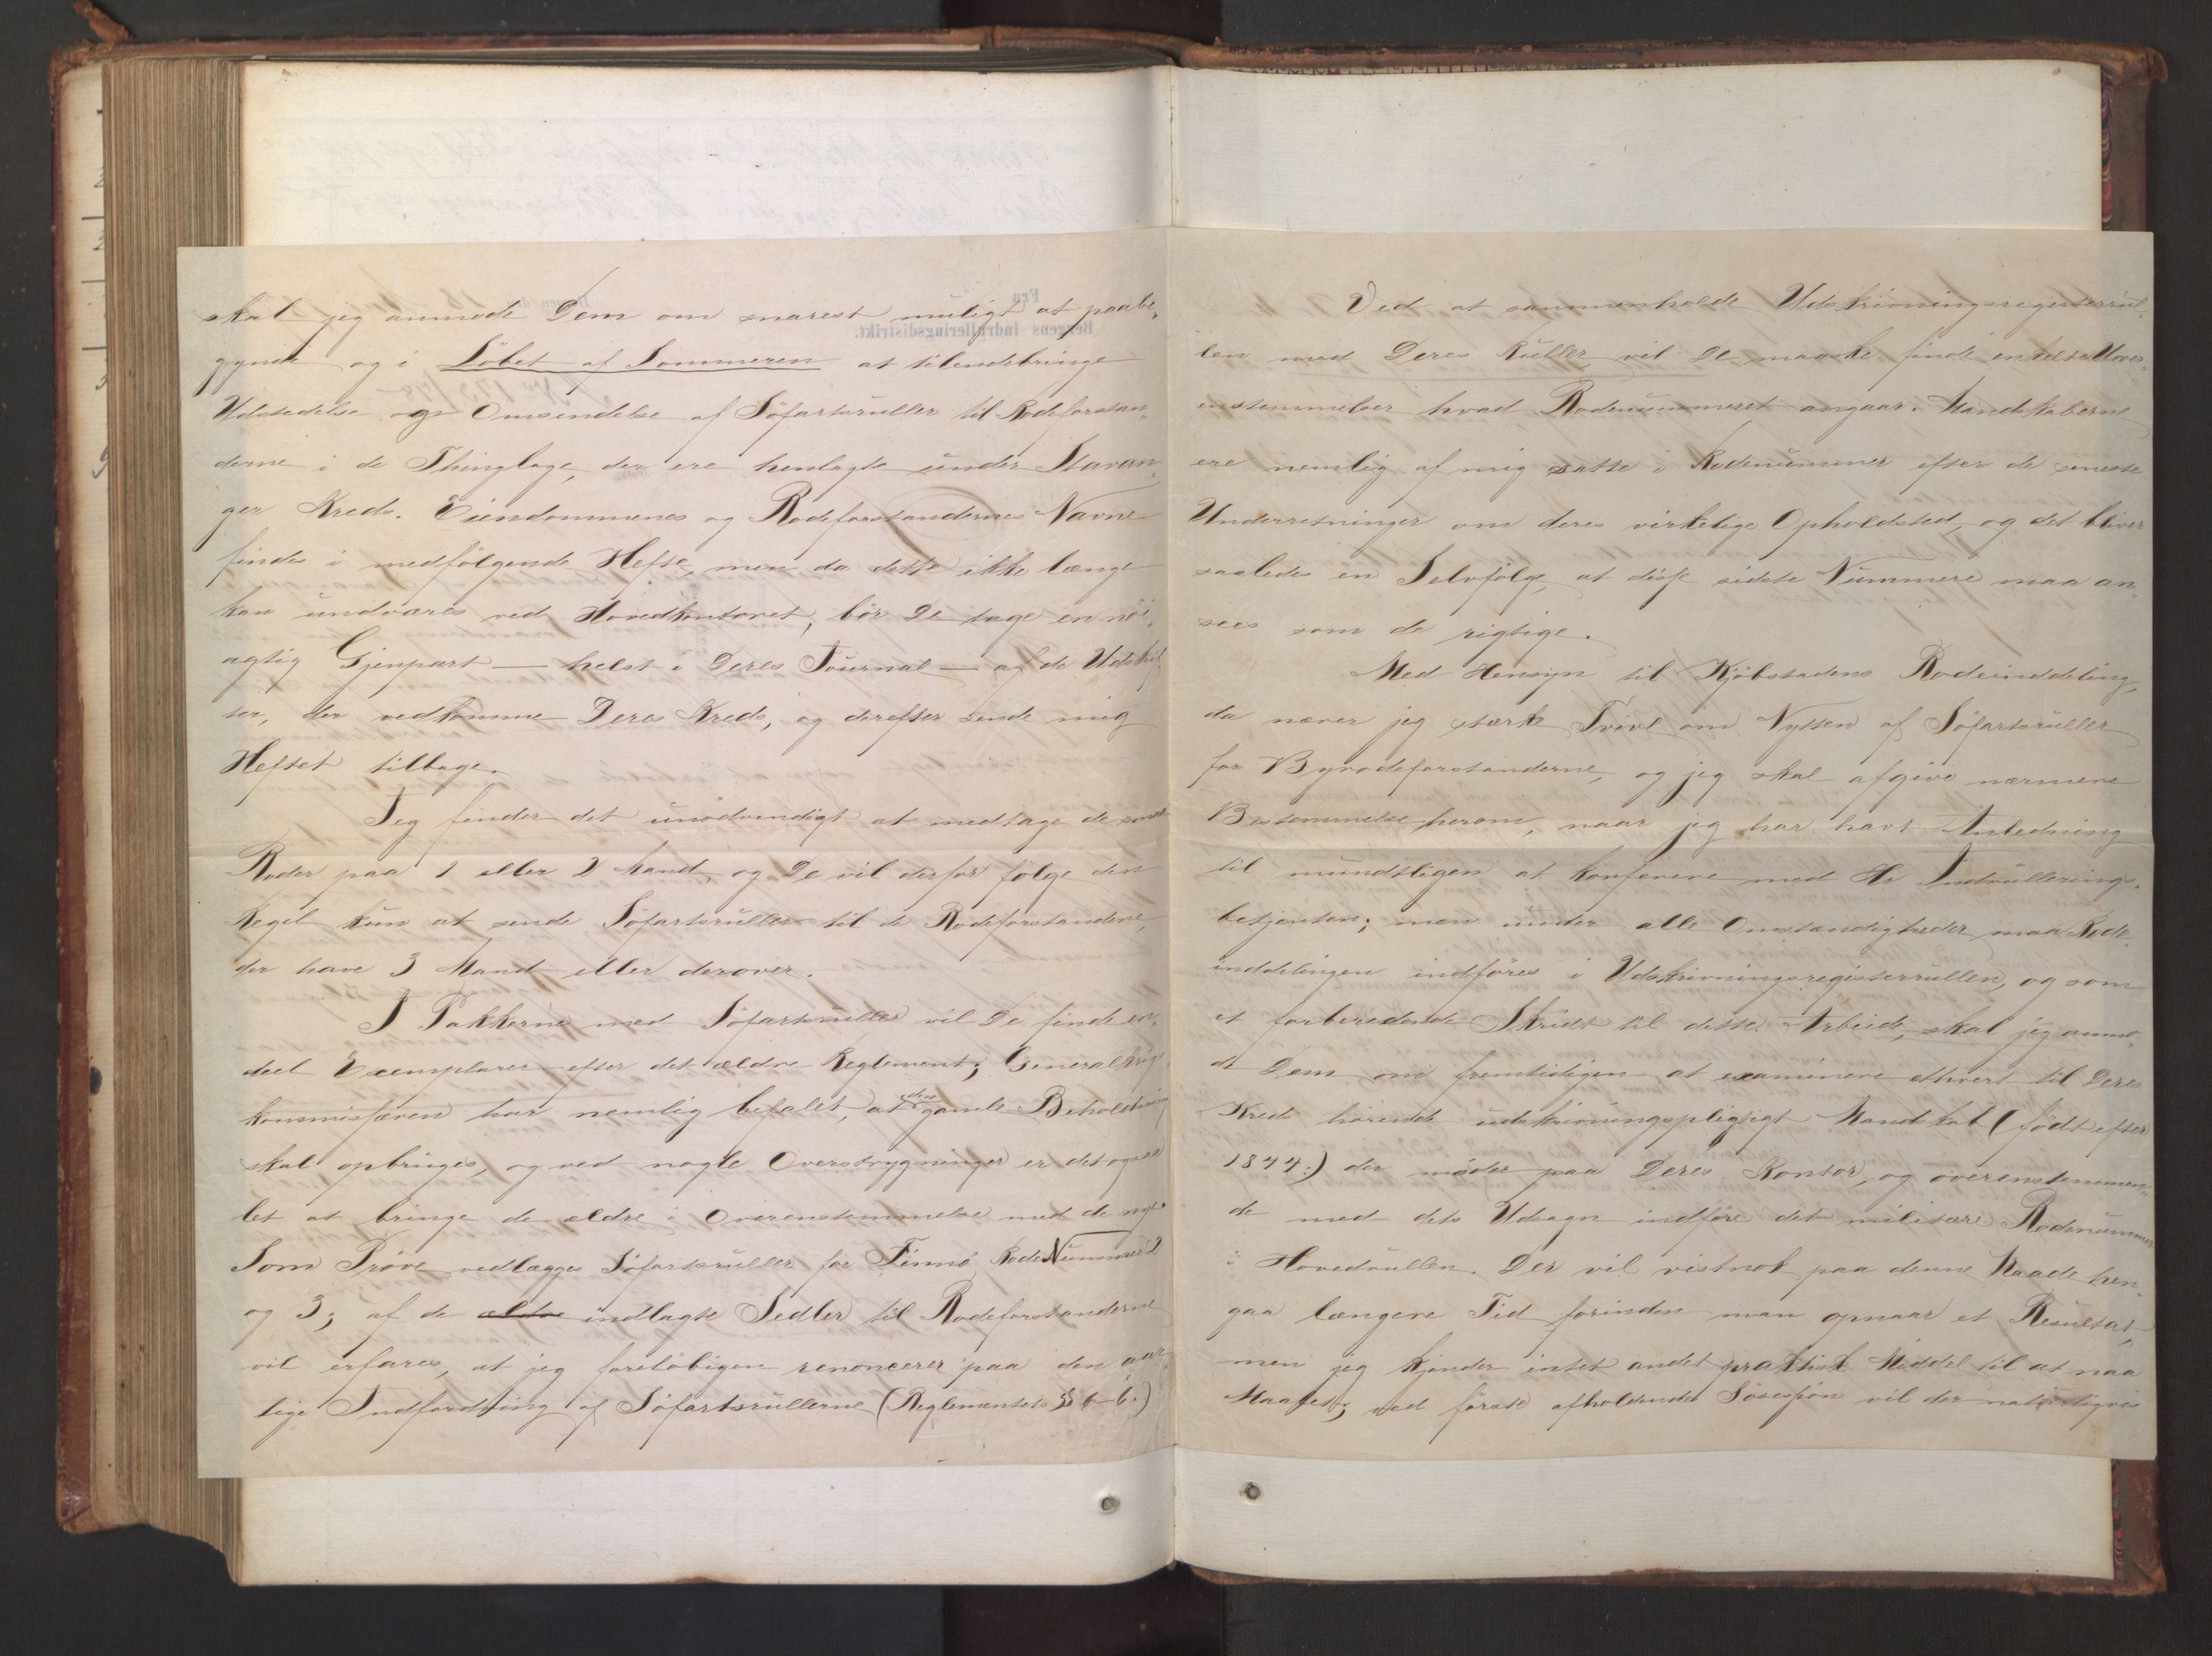 skal jeg anmode Dem om snarest muligt at paabe-
gynde og i Löbet af Sommeren at tilendebringe
Udstedelse og Omsendelse af Söfartsruller til Rodeforstan-
derne i de Thinglage, der ere henlagte under Stavan-
ger Kreds. Eiendommenes og Rodeforstandernes Navne
findes i medfölgende Hefte, men da dette ikke længe
kan undværes ved Hovedkontoret, bör De tage en nöi-
agtig Gjenpart — helst i Deres Journal — af de Udskrif-
ter, der vedkomme Deres Kreds, og derefter sende mig
Heftet tilbage.
Jeg finder det unödvendigt at medtage de smaa
Roder paa 1 eller 2 Mand, og De vil derfor fölge den
Regel kun at sende Söfartsruller til de Rodeforstandere,
der have 3 Mand eller derover.
I Pakkerne med Söfartsruller vil De finde en
deel Exemplarer efter det ældre Reglement; Generalkrigs-
kommissæren har nemlig befalet, at den gamle Beholdning
skal opbruges, og ved nogle Overstrygninger er det ogsaa
let at bringe de ældre i Overenstemmelse med de nye.
Som Pröve vedlægges Söfartsruller for Finnö Rode Nummer 2
og 3; af de ældre indlagte Sedler til Rodeforstanderne
vil erfares, at jeg forelöbigen renoncerer paa den aar-
lige Indfordring af Söfartsrullerne (Reglementets § 6-6.)
Ved at sammenholde Udskrivningsregisterrul-
len med Deres Ruller, vil De maaske finde enkelte Uover-
enstemmelser hvad Rodenummeret angaar. Mandskaberne
ere nemlig af mig satte i Rodenummer efter de seneste
Underretninger om deres virkelige Opholdsted, og det bliver
saaledes en Selvfölge, at disse sidste Nummere maa an-
sees som de rigtige.
Med Hensyn til Kjöbstadens Rodeinddeling,
da nærer jeg stærk Tvivl om Nytten af Söfartsruller
for Byrodeforstanderne, og jeg skal afgive nærmere
Bestemmelse herom, naar jeg har havt Anledning
til mundtligen at konferere med Hr Indrullerings-
betjenten; men under alle Omstændigheder maa Rode-
inddelingen indföres i Udskrivningsregisterrullen, og som
et forberedende Skridt til dette Arbeide, skal jeg anmo-
de Dem om fremtidigen at examinere ethvert til Deres
Kreds hörende udskrivningspligtigt Mandskab (födt efter
1844.) der möder paa Deres Kontor, og overenstemmen-
de med dets Udsagn indföre det militære Rodenummer
i Hovedrullen. Der vil vistnok paa denne Maade hen-
gaa længere Tid forinden man opnaar et Resultat,
men jeg kjender intet andet praktisk Middel til at naa
Maalet; ved förste afholdende Sösession vil der naturligvis
Fra
Bergens Indrulleringsdistrikt.